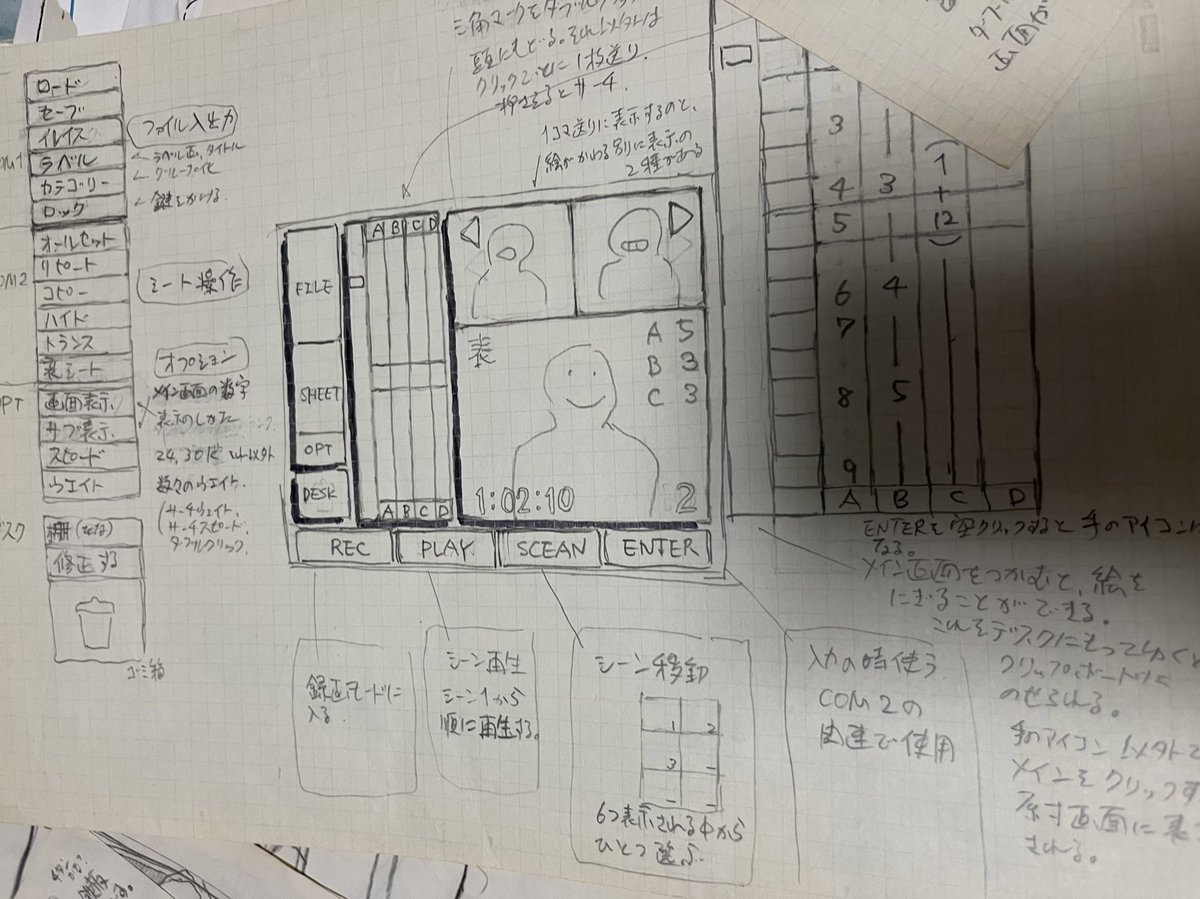 三角マークをダブル
頭にもどる。それ以外は
クリックごとに1枚送り.
押せるとサーチ.
1コマ送りに表示するのと、
絵がかわる別に表示の
2種がある
画面が
ロード
セーブ
イレイス
ラベル
カテゴリー
ロック
ファイル入出力
←ラベル画、タイトル
←グループ化
←鍵をかける.
OM2
オールセット
リピート
コピー
ハイド
トランス
裏シート
シート操作
PT
画面表示.
サブ表示.
スピード
ウエイト
オプション
メイン画面の数字
表示のしかた
数々のウェイト.
サーチウェイト.
サーチスピード.
ダブルクリック.
スク
棚
修正する
ゴミ箱
FILE
SHEET
OPT
DESK
A B C D
A B C D
表
A 5
B 3
C 3
1:02:10
2
REC
PLAY
SCEAN
ENTER
3
4 3 1
+
5 12
6 4
7
8 5
9
A B C D
録画モードに
入る.
シーン再生
シーン1から
順に再生する。
シーン移動
1 2
3
6つ表示される中から
ひとつ選ぶ
入力の時使う
COM2の
関連で使用
ENTERを空クリックすると手のアイコンに
なる。
メイン画面をつかむと、絵を
にぎることができる。
これをデスクにもってゆくと
クリップボードに
のせられる。
手のアイコン以外で
メインをクリックす
原寸画面に表
される。